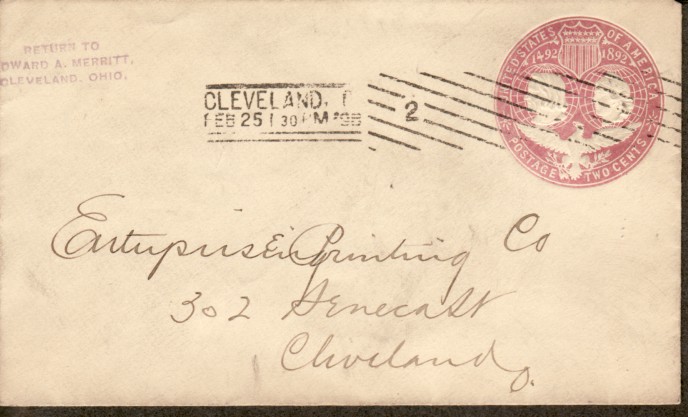 RETURN TO
EDWARD A. MERRITT,
CLEVELAND, OHIO.
UNITED STATES OF AMERICA
1492 1892
U.S. POSTAGE TWO CENTS
CLEVELAND, O
FEB 25 1 30 PM
2
Enterprise Printing Co
302 Seneca St
Cleveland
O.